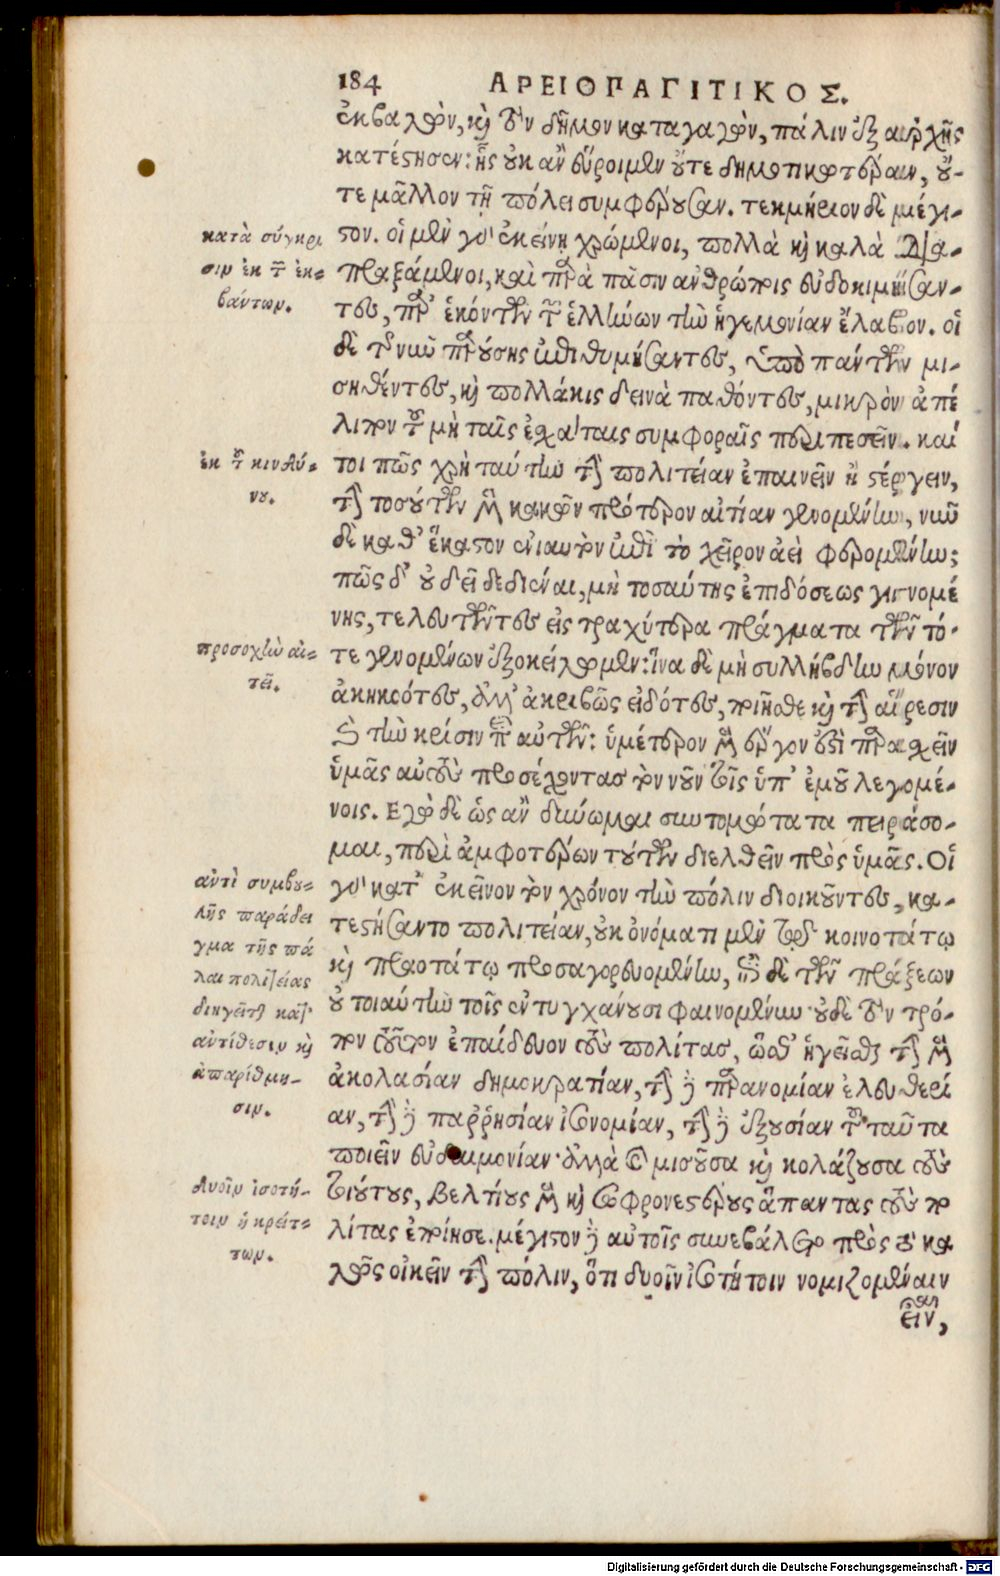 184 ΑΡΕΙΟΠΑΓΙΤΙΚΟΣ.
ἐκβαλὼν, καὶ τὸν δῆμον καταγαγὼν, πάλιν ἐξ ἀρχῆς
κατέστησεν: ἧς οὐκ ἂν εὕροιμεν οὔτε δημοτικωτέραν, οὔ-
τε μᾶλλον τῇ πόλει συμφέρουσαν. τεκμήριον δὲ μέγι-
στον. οἱ μὲν γὰρ ἐκείνῃ χρώμενοι, πολλὰ καὶ καλὰ δια-
πραξάμενοι, καὶ παρὰ πᾶσιν ἀνθρώποις εὐδοκιμήσαν-
τες, παρ' ἑκόντων τῶν ἑλλήνων τὴν ἡγεμονίαν ἔλαβον. οἱ
δὲ τῆς νῦν παρούσης ἐπιθυμήσαντες, ὑπὸ πάντων μι-
σηθέντες, καὶ πολλάκις δεινὰ παθόντες, μικρὸν ἀπέ
λιπον τοῦ μὴ ταῖς ἐσχάταις συμφοραῖς περιπεσεῖν. καί
τοι πῶς χρὴ ταύτην τὴν πολιτείαν ἐπαινεῖν ἢ στέργειν,
τὴν τοσούτων μὲν κακῶν πρότερον αἰτίαν γενομένην, νῦν
δὲ καθ' ἕκαστον ἐνιαυτὸν ἐπὶ τὸ χεῖρον ἀεὶ φερομένην;
πῶς δ' οὐ δεῖ δεδιέναι, μὴ τοσαύτης ἐπιδόσεως γιγνομέ
νης, τελευτῶντες εἰς τραχύτερα πράγματα τῶν τό-
τε γενομένων ἐξοκείλωμεν: ἵνα δὲ μὴ συλλήβδην μόνον
ἀκηκοότες, ἀλλ' ἀκριβῶς εἰδότες, ποιῆσθε καὶ τὴν αἵρεσιν
καὶ τὴν κρίσιν περὶ αὐτῶν: ὑμέτερον μὲν ἔργον ἐστὶ παρασχεῖν
ὑμᾶς αὐτοὺς προσέχοντας τὸν νοῦν τοῖς ὑπ' ἐμοῦ λεγομέ-
νοις. Εγὼ δὲ ὡς ἂν δύνωμαι συντομώτατα πειράσο-
μαι, περὶ ἀμφοτέρων τούτων διελθεῖν πρὸς ὑμᾶς. Οἱ
γὰρ κατ' ἐκεῖνον τὸν χρόνον τὴν πόλιν διοικοῦντες, κα-
τεστήσαντο πολιτείαν, οὐκ ὀνόματι μὲν τῷ κοινοτάτῳ
καὶ πραοτάτῳ προσαγορευομένην, ἐπὶ δὲ τῶν πράξεων
οὐ τοιαύτην τοῖς ἐντυγχάνουσι φαινομένην· οὐδὲ τὸν τρό-
πον τοῦτον ἐπαίδευον τοὺς πολίτας, ὥσθ' ἡγεῖσθαι τὴν μὲν
ἀκολασίαν δημοκρατίαν, τὴν δὲ παρανομίαν ἐλευθερί
αν, τὴν δὲ παῤῥησίαν ἰσονομίαν, τὴν δὲ ἐξουσίαν τοῦ ταῦτα
ποιεῖν εὐδαιμονίαν· ἀλλὰ ἣ μισοῦσα καὶ κολάζουσα τοὺς
τοιούτους, βελτίους μὲν καὶ σωφρονεστέρους ἅπαντας τοὺς πο
λίτας ἐποίησε. μέγιστον δὲ αὐτοῖς συνεβάλετο πρὸς τὸ κα
λῶς οἰκεῖν τὴν πόλιν, ὅτι δυοῖν ἰσοτήτοιν νομιζομέναιν
εἶναι,
κατὰ σύγκρι
σιν ἐκ τῶν ἐκ-
βάντων.
ἐκ τοῦ κινδύ-
νου.
προσοχὴν αἰ-
τεῖ.
ἀντὶ συμβου-
λῆς παράδει
γμα τῆς πά
λαι πολιτείας
διηγεῖται κατ'
ἀντίθεσιν καὶ
ἀπαρίθμη-
σιν.
δυοῖν ἰσοτή-
τοιν ἡ κρείτ-
των.
Digitalisierung gefördert durch die Deutsche Forschungsgemeinschaft - DFG